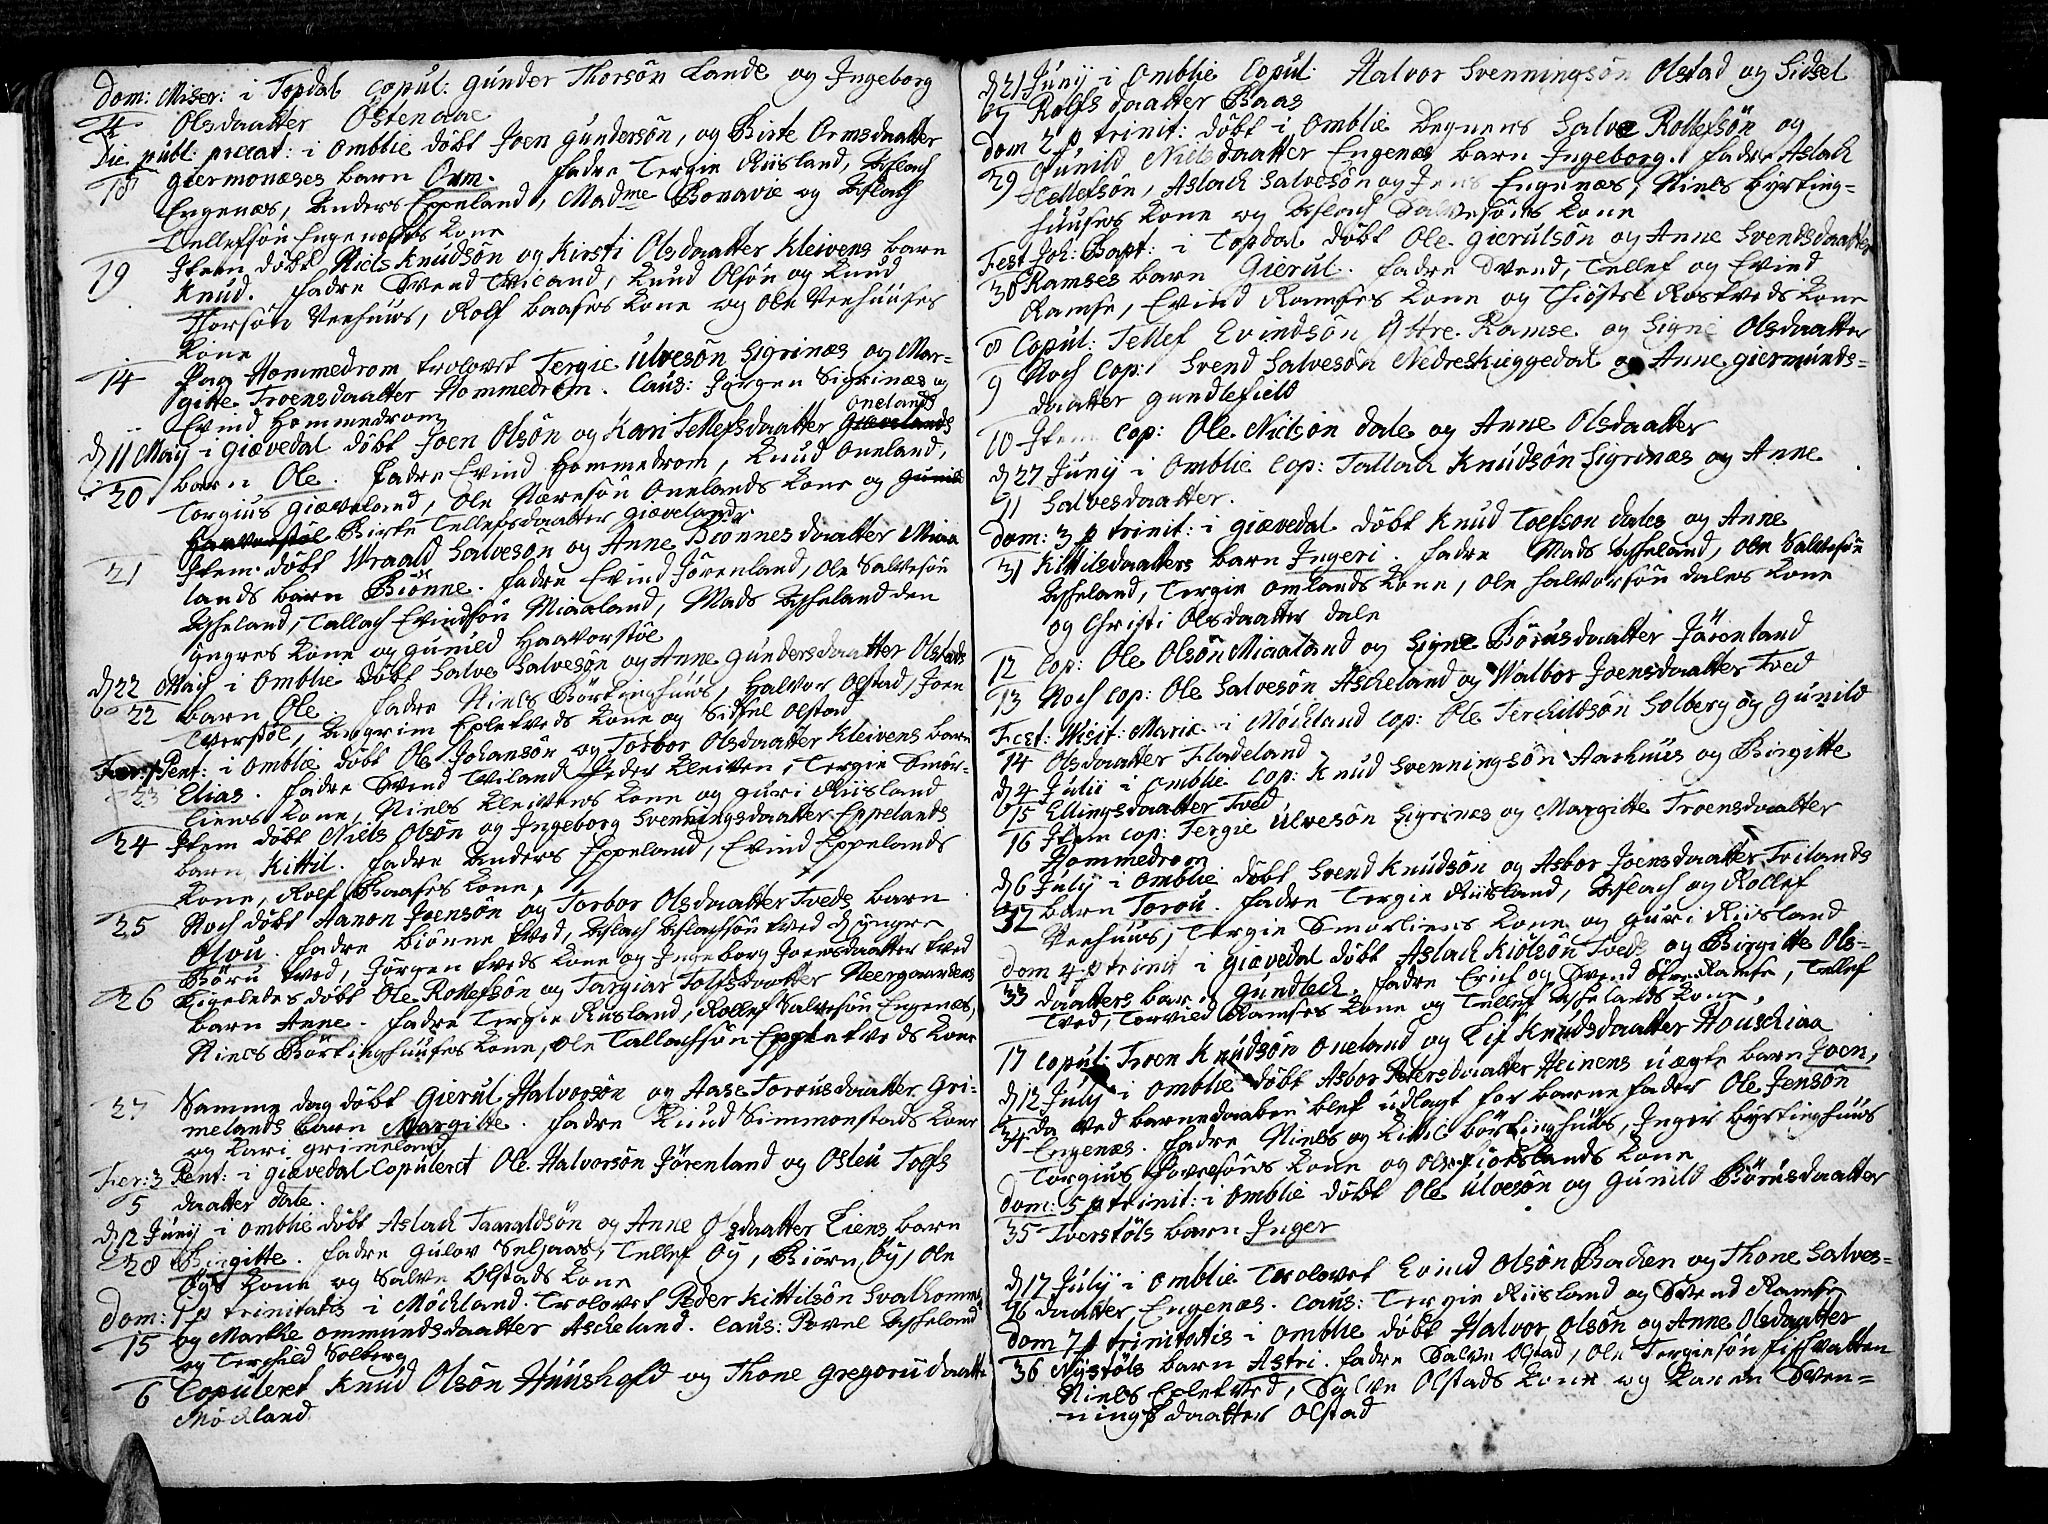 Dom: Miser: i Topdal Copul: Gunder Thorsøn Lande og Ingeborg
4 Olsdaatter Østenaae
Die publ: precat: i Omblie døbt Joen Gundersøn, og Birte Ormsdaatter
18 Giermonæses barn Orm. Fadre Tergie Riisland, Aslach
Engenæs, Anders Eppeland, Madme Bonavie og Aslach
Tellefsøn Engenæses Kone
19 Item døbt Niels Knudsøn og Kirsti Olsdaatter Kleivens barn
Knud. Fadre Svend Tvieand, Knud Olsøn og Knud
Thorsøn Veehuus, Rolf Baases Kone og Ole Veehuuses
Kone
14 Paa Hommedrom trolovet Tergie Ulvesøn Sigrinæs og Mar-
gitte Troensdaatter Hommedrom. Caus: Jørgen Sigrinæs og
Evind Hommedrom
d 11 Maij i Giævedal døbt Joen Olsøn og Kari Tellefsdaatter Onelands
20 barn Ole. Fadre Evind Hommedrom, Knud Oneland,
Torgius Giæveland, Ole Næresøn Onelands Kone og
Birte Tellefsdaatter Giævelands
21 Item døbt Wraald Salvesøn og Anne Biønnesdaatter Miaa
lands barn Biønne. Fadre Evind Jørenland, Ole Salvesøn
Asseland, Tallach Evindsøn Miaaland, Mads Asseland den
yngres Kone og Gunild Haavorstøl
d 22 Maij i Omblie døbt Salve Salvesøn og Anne Gundersdaatter Olstads
22 barn Ole. Fadre Niels Børtinghuus, Halvor Olstad, Joen
Tverstøl, Angrim Epletveds Kone og Sidsel Olstad
Fer: 1 Pent: i Omblie døbt Ole Johansøn og Torbor Olsdaatter Kleivens barn
23 Elias. Fadre Svend Tviland, Peder Kleiven, Tergie Smør-
liens Kone, Niels Kleivens Kone og Guri Riisland
24 Item døbt Niels Olsøn og Ingeborg Svenningsdaatter Eppelands
barn Kittil. Fadre Anders Eppeland, Evind Eppelands
Kone, Rolf Baases Kone,
25 Noch døbt Aanon Joensøn og Torbor Olsdaatter Tveds barn
Olou. Fadre Biønne Tved, Aslach Aslachsøn Tved d yngre
Børu Tved, Jørgen Tveds Kone og Ingeborg Joensdaatter Tved
26 Ligeledes døbt Ole Rollefsøn og Targiær Tolfsdaatter Neergaardens
barn Anne. Fadre Tergie Riisland, Rollef Salvesøn Engenæs,
Niels Børtinghuuses Kone, Ole Tallachsøn Eppletveds Kone
27 Samme dag døbt Gierul Halvorsøn og Aase Torusdaatter Gri-
melands barn Margitte. Fadre Knud Simmonstads Kone
og Kari Grimeland
Fer: 3 Pent: i Giævedal Copuleret Ole Halvorsøn Jørenland og Osleu Tolfs
5 daatter Dale.
d 2 Junij i Omblie døbt Aslach Taaraldsøn og Anne Olsdaatter Liens barn
28 Birgitte. Fadre Gulov Seljaas, Tellef Øy, Biørn Øy, Ole
Øys Kone og Salve Olstads Kone
Dom: 1 p trinitatis i Møckland Trolovet Peder Kittilsøn Svalhomme
15 og Marthe Ommundsdaatter Ascheland. Caus: Povel Asseland
og Terchild Solberg
6 Copuleret Knud Olsøn Huushold og Thone Gregorii daatter
Møckland
d 21 Junij i Omblie Copul: Halvor Svenningsøn Olstad og Sidsel
7 Rolfs daatter Baas
Dom 2 p trinit: døbt i Omblie Degnens Salve Rollefsøn og
29 Gunild Nielsdaatter Engenæs barn Ingeborg. Fadre Aslach
Tellefsøn, Aslach Salvesøn og Jens Engenæs, Niels Byrting-
huuses Kone og Aslach Salvesøns Kone
Fest Joh: Bapt: i Topdal døbt Ole Gierulsøn og Anne Svendsdaatter
30 Ramses barn Gierul. Fadre Svend, Tellef og Evind
Ramse, Evind Ramses Kone og Thiøstel Rostveds Kone
8 Copul: Tellef Evindsøn Yttre Ramse og Signe Olsdaatter
9 Noch Cop: Svend Salvesøn Nedreskuggedal og Anne Giermunds-
daatter Gundlefield
10 Item Cop: Ole Nielsøn Dale og Anne Olsdaatter
d 27 Junij i Omblie Cop: Tallach Knudsøn Sigrinæs og Anne
11 Salvesdaatter.
Dom: 3 p trinit: i Giævedal døbt Knud Toefson Dales og Anne
31 Kittilsdaatters barn Ingeri. Fadre Mads Asseland, Ole Salvesøn
Asseland, Tergie Omlands Kone, Ole Halvorsøn Dales Kone
og Christi Olsdaatter Dale
12 Cop: Ole Olsøn Miaaland og Signe Børusdaatter Jørenland
13 Noch Cop: Ole Salvesøn Ascheland og Walbor Joensdaatter Tved
Fest: Visit: Mariæ i Møckland Cop: Ole Terchildsøn Solberg og Gunild
14 Olsdaatter Fladeland
d 4 Julii i Omblie Cop: Knud Svenningsøn Aashuus og Birgitte
15 Ellingsdaatter Tved
16 Item Cop: Tergie Ulvesøn Sigrinæs og Margitte Troensdaatter
Hommedrom
d 6 Julij i Omblie døbt Svend Knudsøn og Asbor Joensdaatter Tvilands
32 barn Torou. Fadre Tergie Riisland, Aslach og Rollef
Veehuus, Tergie Smørliens Kone og Guri Riisland
Dom 4 p trinit i Giævedal døbt Aslach Kiølsøn Tveds og Birgitte Ols-
33 daatters barn Gundlech. Fadre Erich og Svend Ramse, Tellef
Tved, Torvild Ramses Kone og Tellef Asselands Kone,
17 Copul: Troen Knudsøn Oneland og Lif Knudsdaatter Houschiaa
d 12 Julij i Omblie døbt Asbor Petersdaatter Heinens uægte barn Joen,
34 da ved barnedaaben blef udlagt for barnefader Ole Jensøn
Engenæs. Fadre Niels og Kittil Børtinghuus, Inger Byrtinghuus
Torgius Kone og Ole Fiøslands Kone
Dom: 5 p trinit: i Omblie døbt Ole Ulvesøn og Gunild Børusdaatter
35 Tverstøls barn Inger
d 17 Julij i Omblie Trolovet Evind Olsøn Bachen og Thone Salves-
16 daatter Engenæs. Caus: Tergie Riisland og Svend Ramse
Dom 7 p trinitatis i Omblie døbt Halvor Olsøn og Anne Olsdaatter
36 Nystøls barn Astri. Fadre Salve Olstad, Ole Tergiesøn Fischvatten
Niels Epletved, Salve Olstads Kone og Karen Sven-
ningsdaatter Olstad